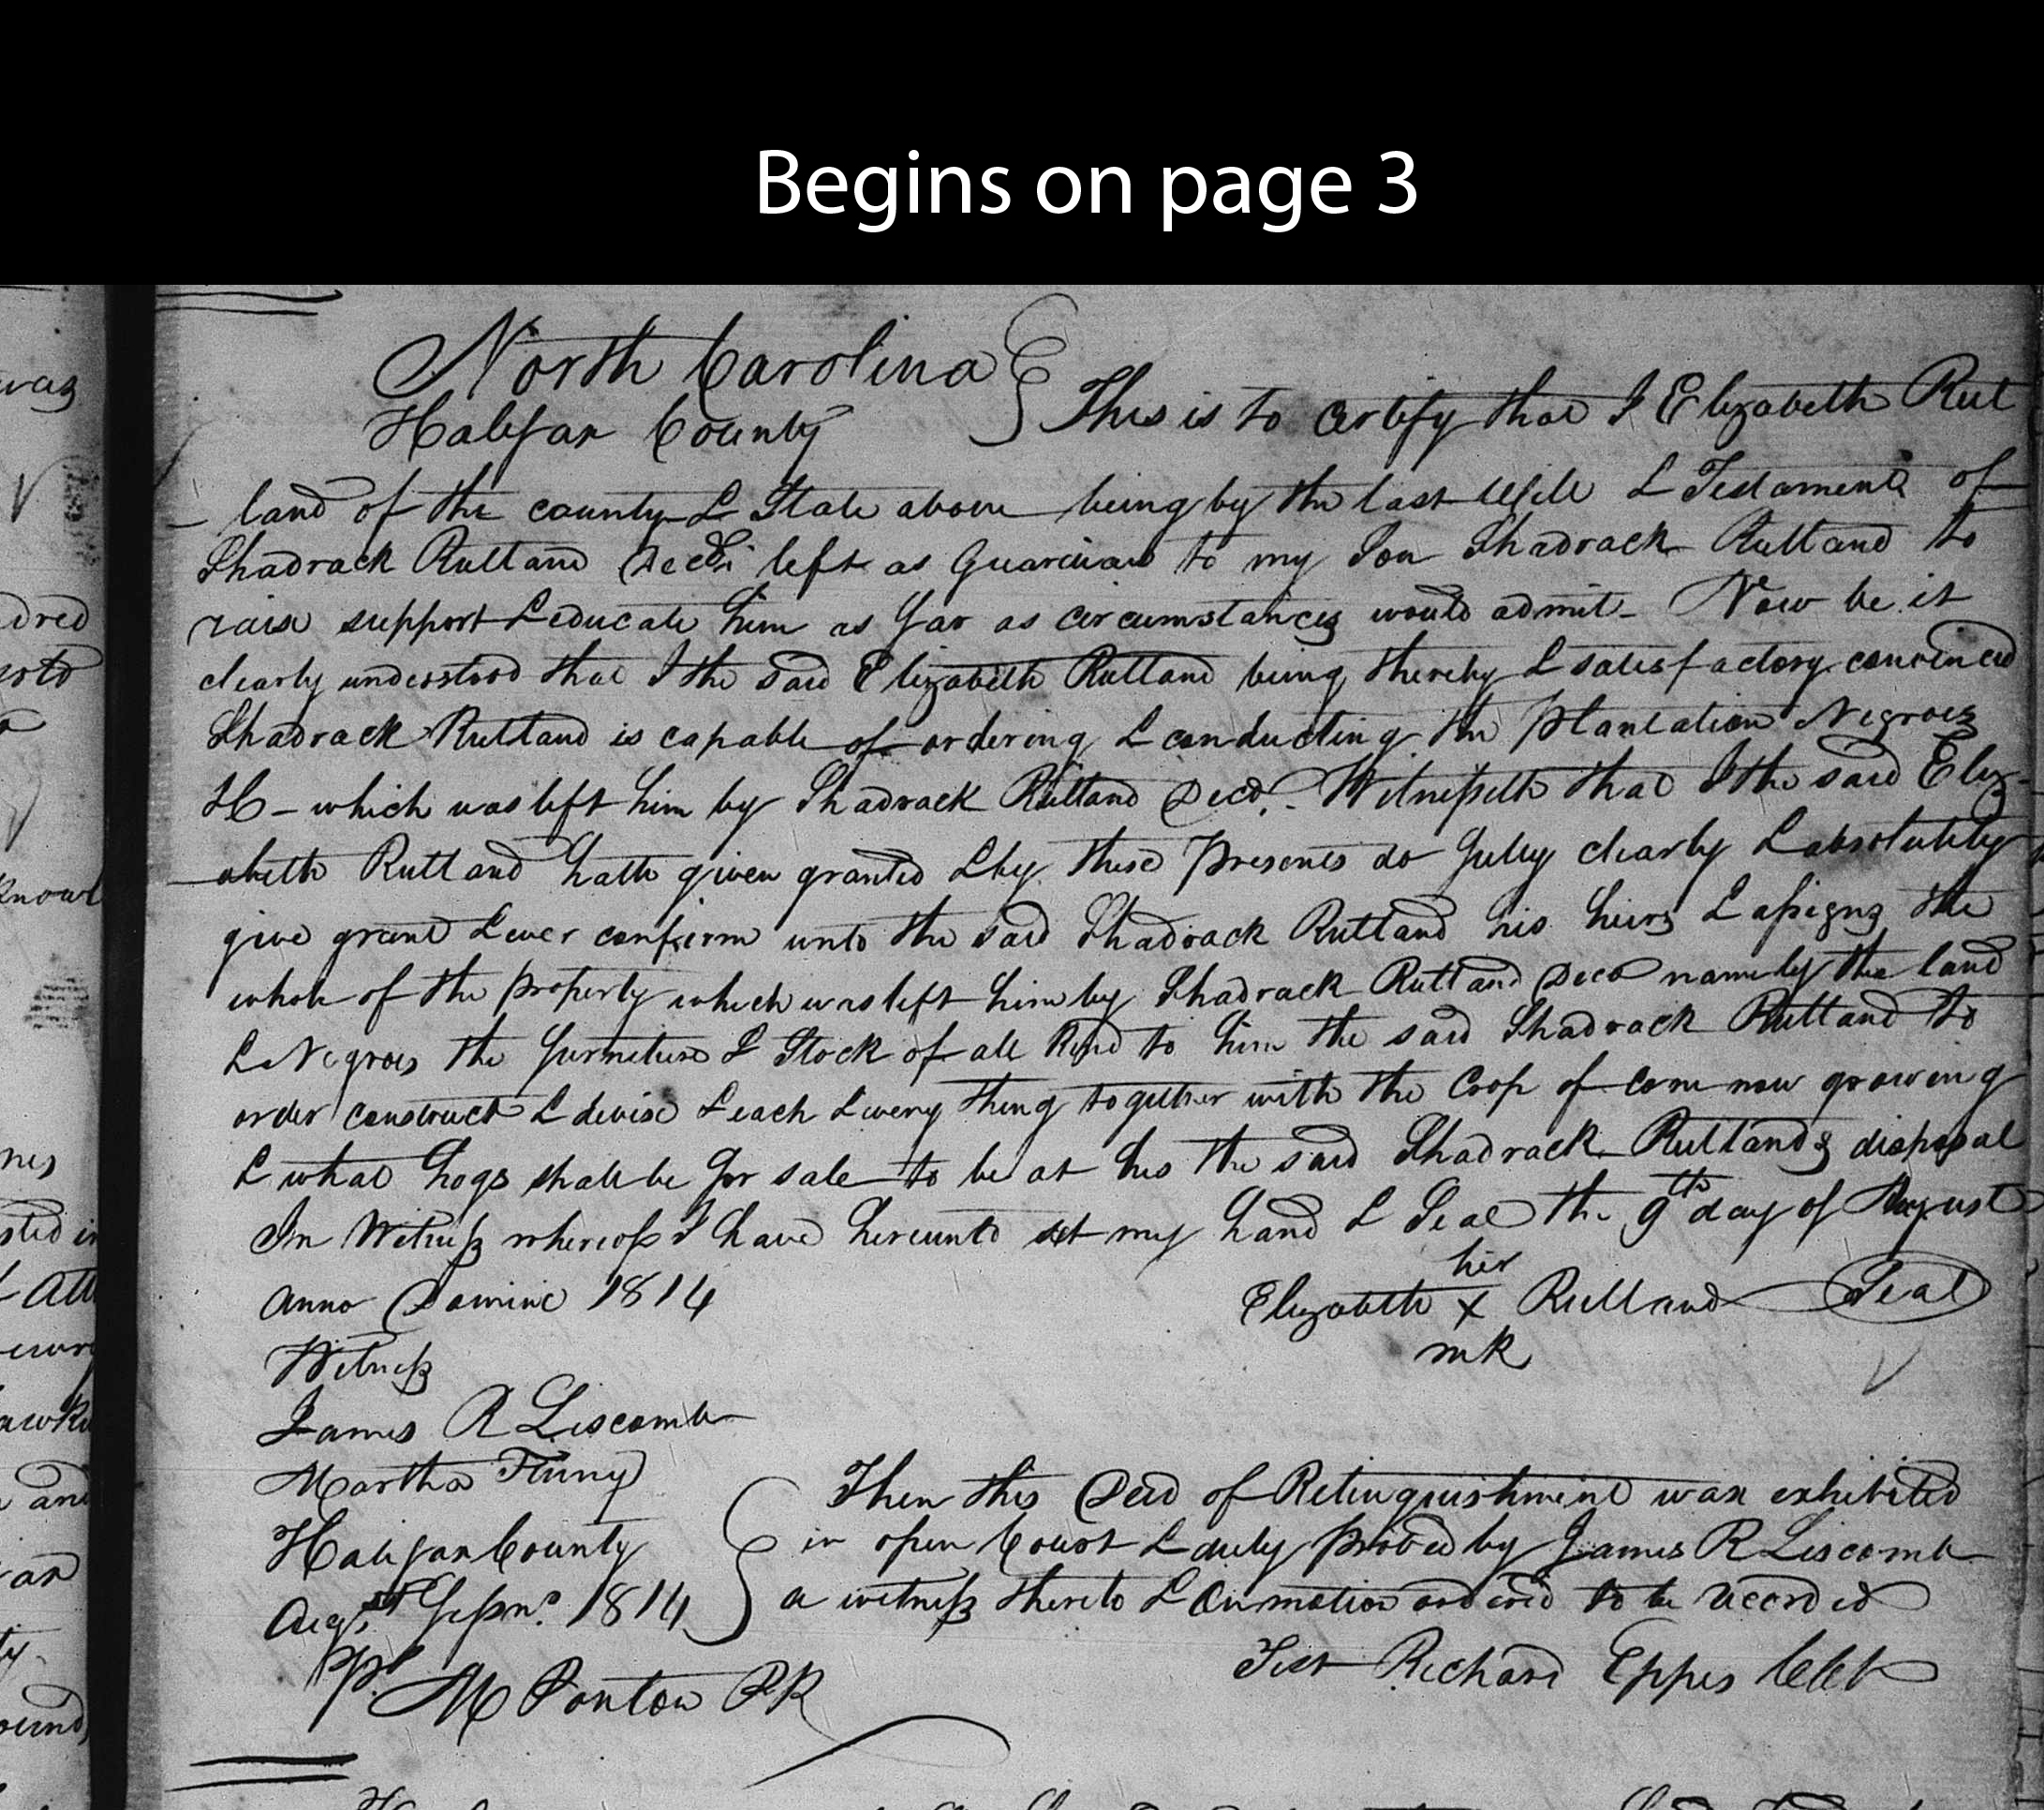 Begins on page 3
North Carolina
Halifax County } This is to certify that I Elizabeth Rut
- land of the county & State above being by the last Will & Testament of
Shadrack Rutland Decd. left as Guardian to my Son Shadrack Rutland to
raise support & educate him as far as circumstances would admit - Now be it
clearly understood that I the said Elizabeth Rutland being thereby & satisfactory convinced
Shadrack Rutland is capable of ordering & conducting the Plantation Negroes
&c - which was left him by Shadrack Rutland Decd. - Witnesseth that I the said Eliz-
abeth Rutland hath given granted & by these Presents do fully clearly & absolutely
give grant & ever confirm unto the said Shadrack Rutland his heirs & assigns the
whole of the property which was left him by Shadrack Rutland Decd namely the land
& Negroes the furniture & Stock of all Kind to him the said Shadrack Rutland to
order construct & devise & each & every thing together with the Crop of corn now growing
& what hogs shall be for sale to be at his the said Shadrack Rutlands disposal
In Witness whereof I have hereunto set my hand & Seal the 9th day of August
Anno Domini 1814
her
Elizabeth x Rutland Seal
mk
Witness
James R Liscomb
Martha
Halifax County
Augt. Sessn. 1814 } Then this Deed of Relinquishment was exhibited
in open Court & duly proved by James R Liscomb
a witness thereto & On motion ordered to be recorded
Test Richard Eppes CClk
M Ponton PR